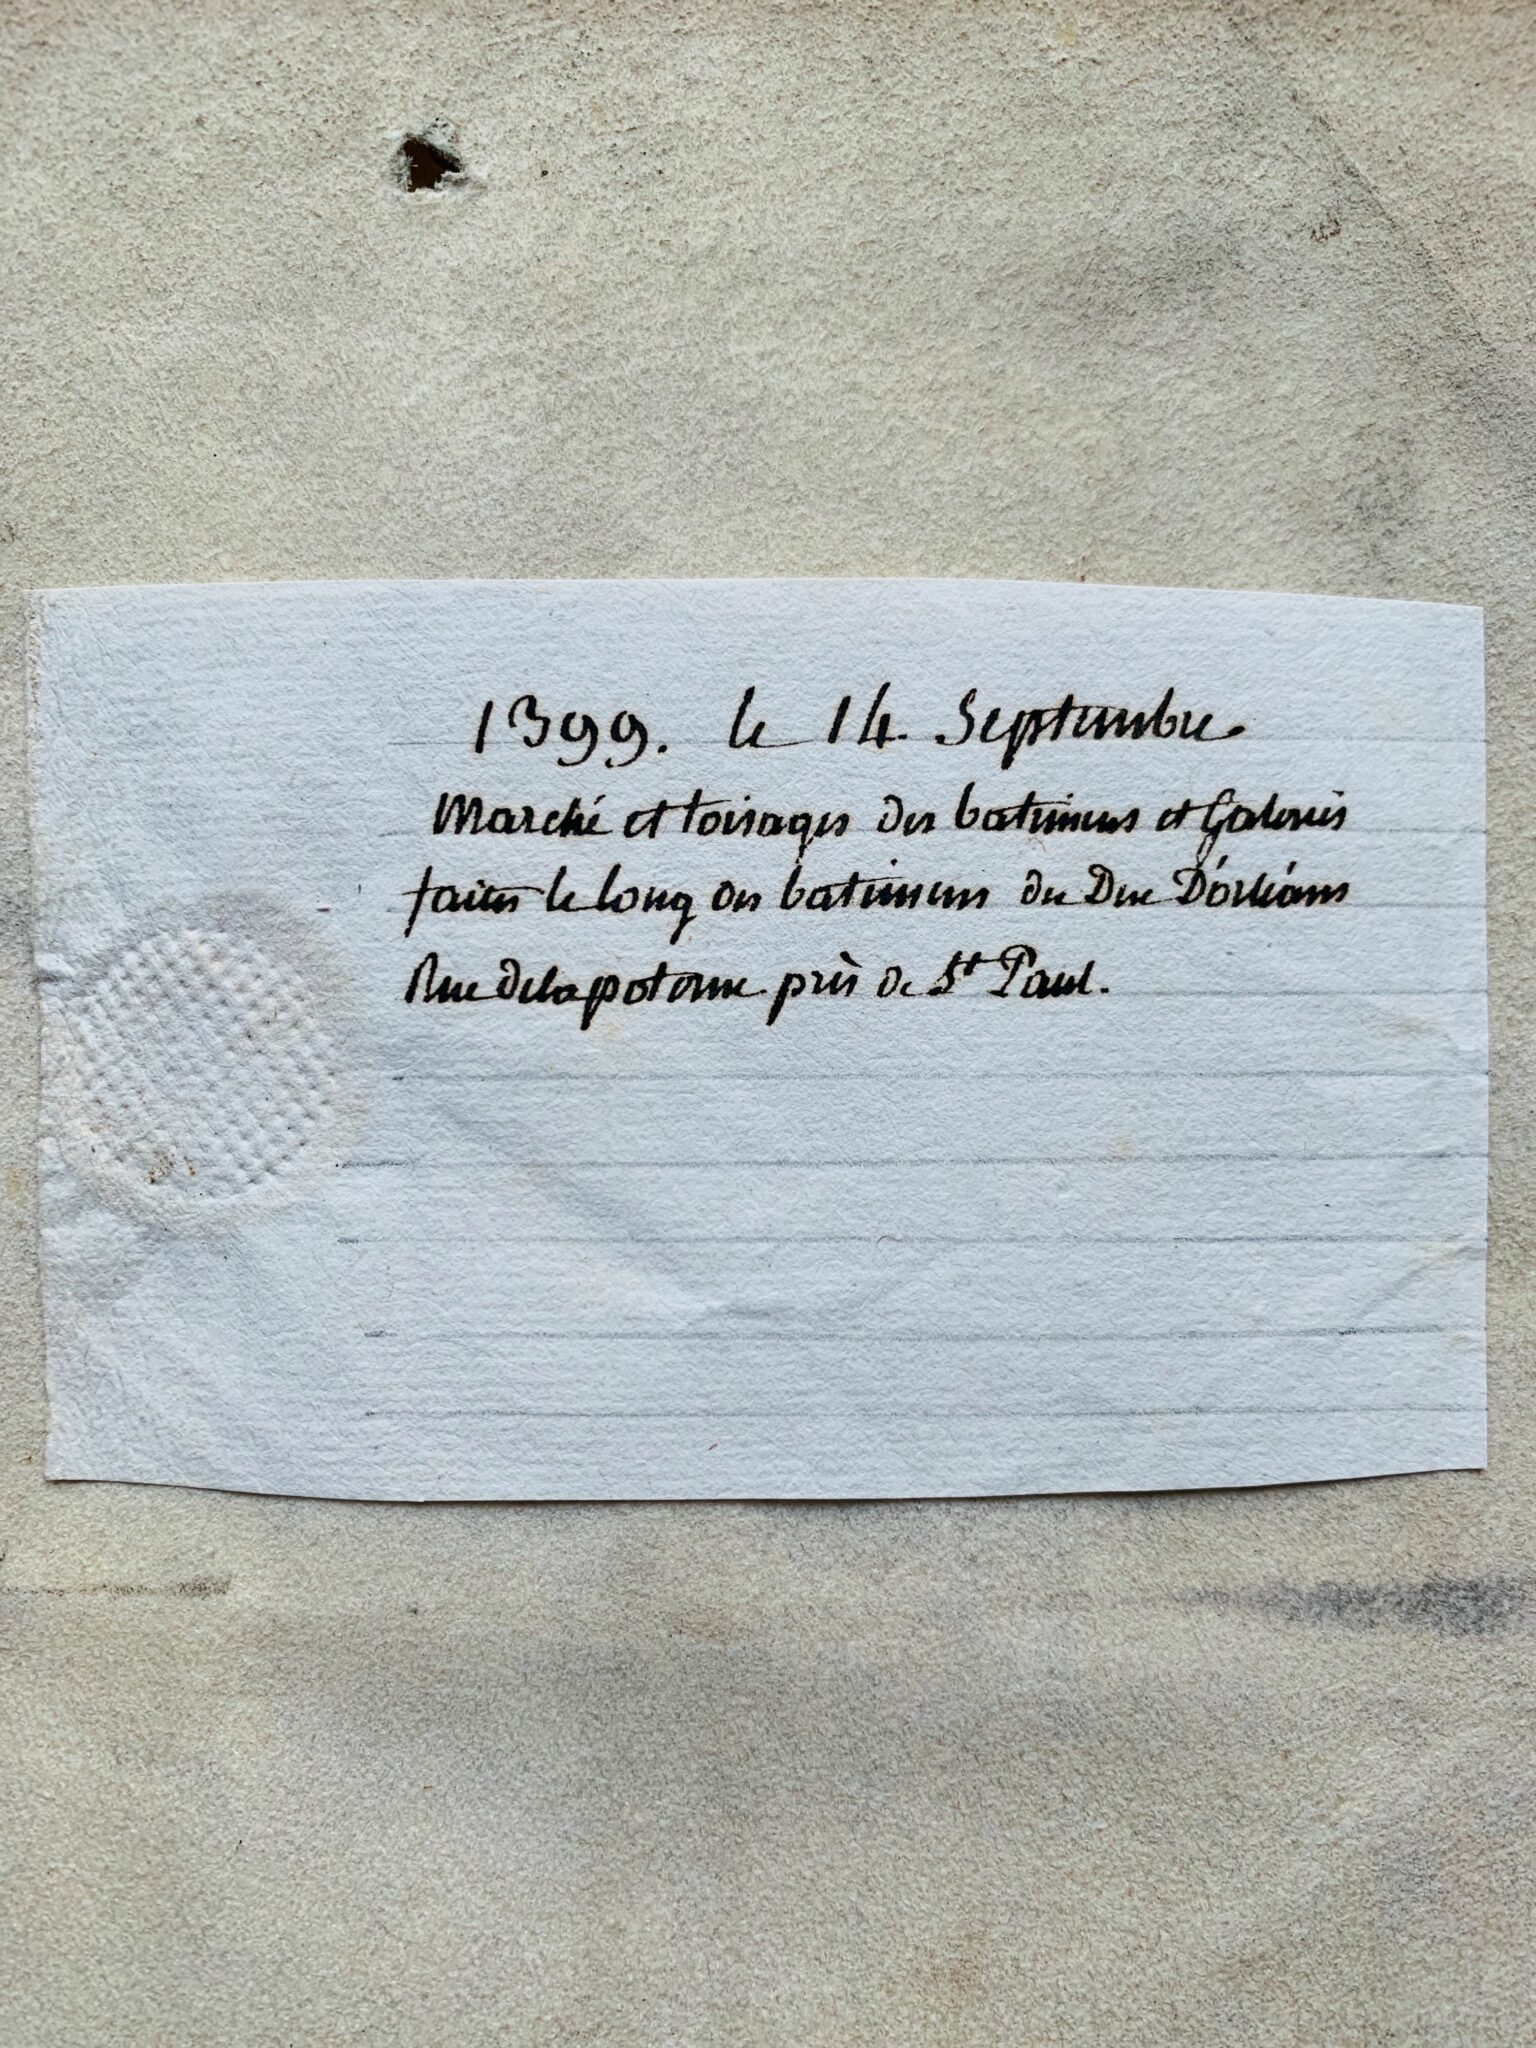 1399. le 14. Septembre.
Marché et toisages des batimens et Galeries
faites le long des batimens du Duc D'orléans
Rue delapoterne près de St Paul.